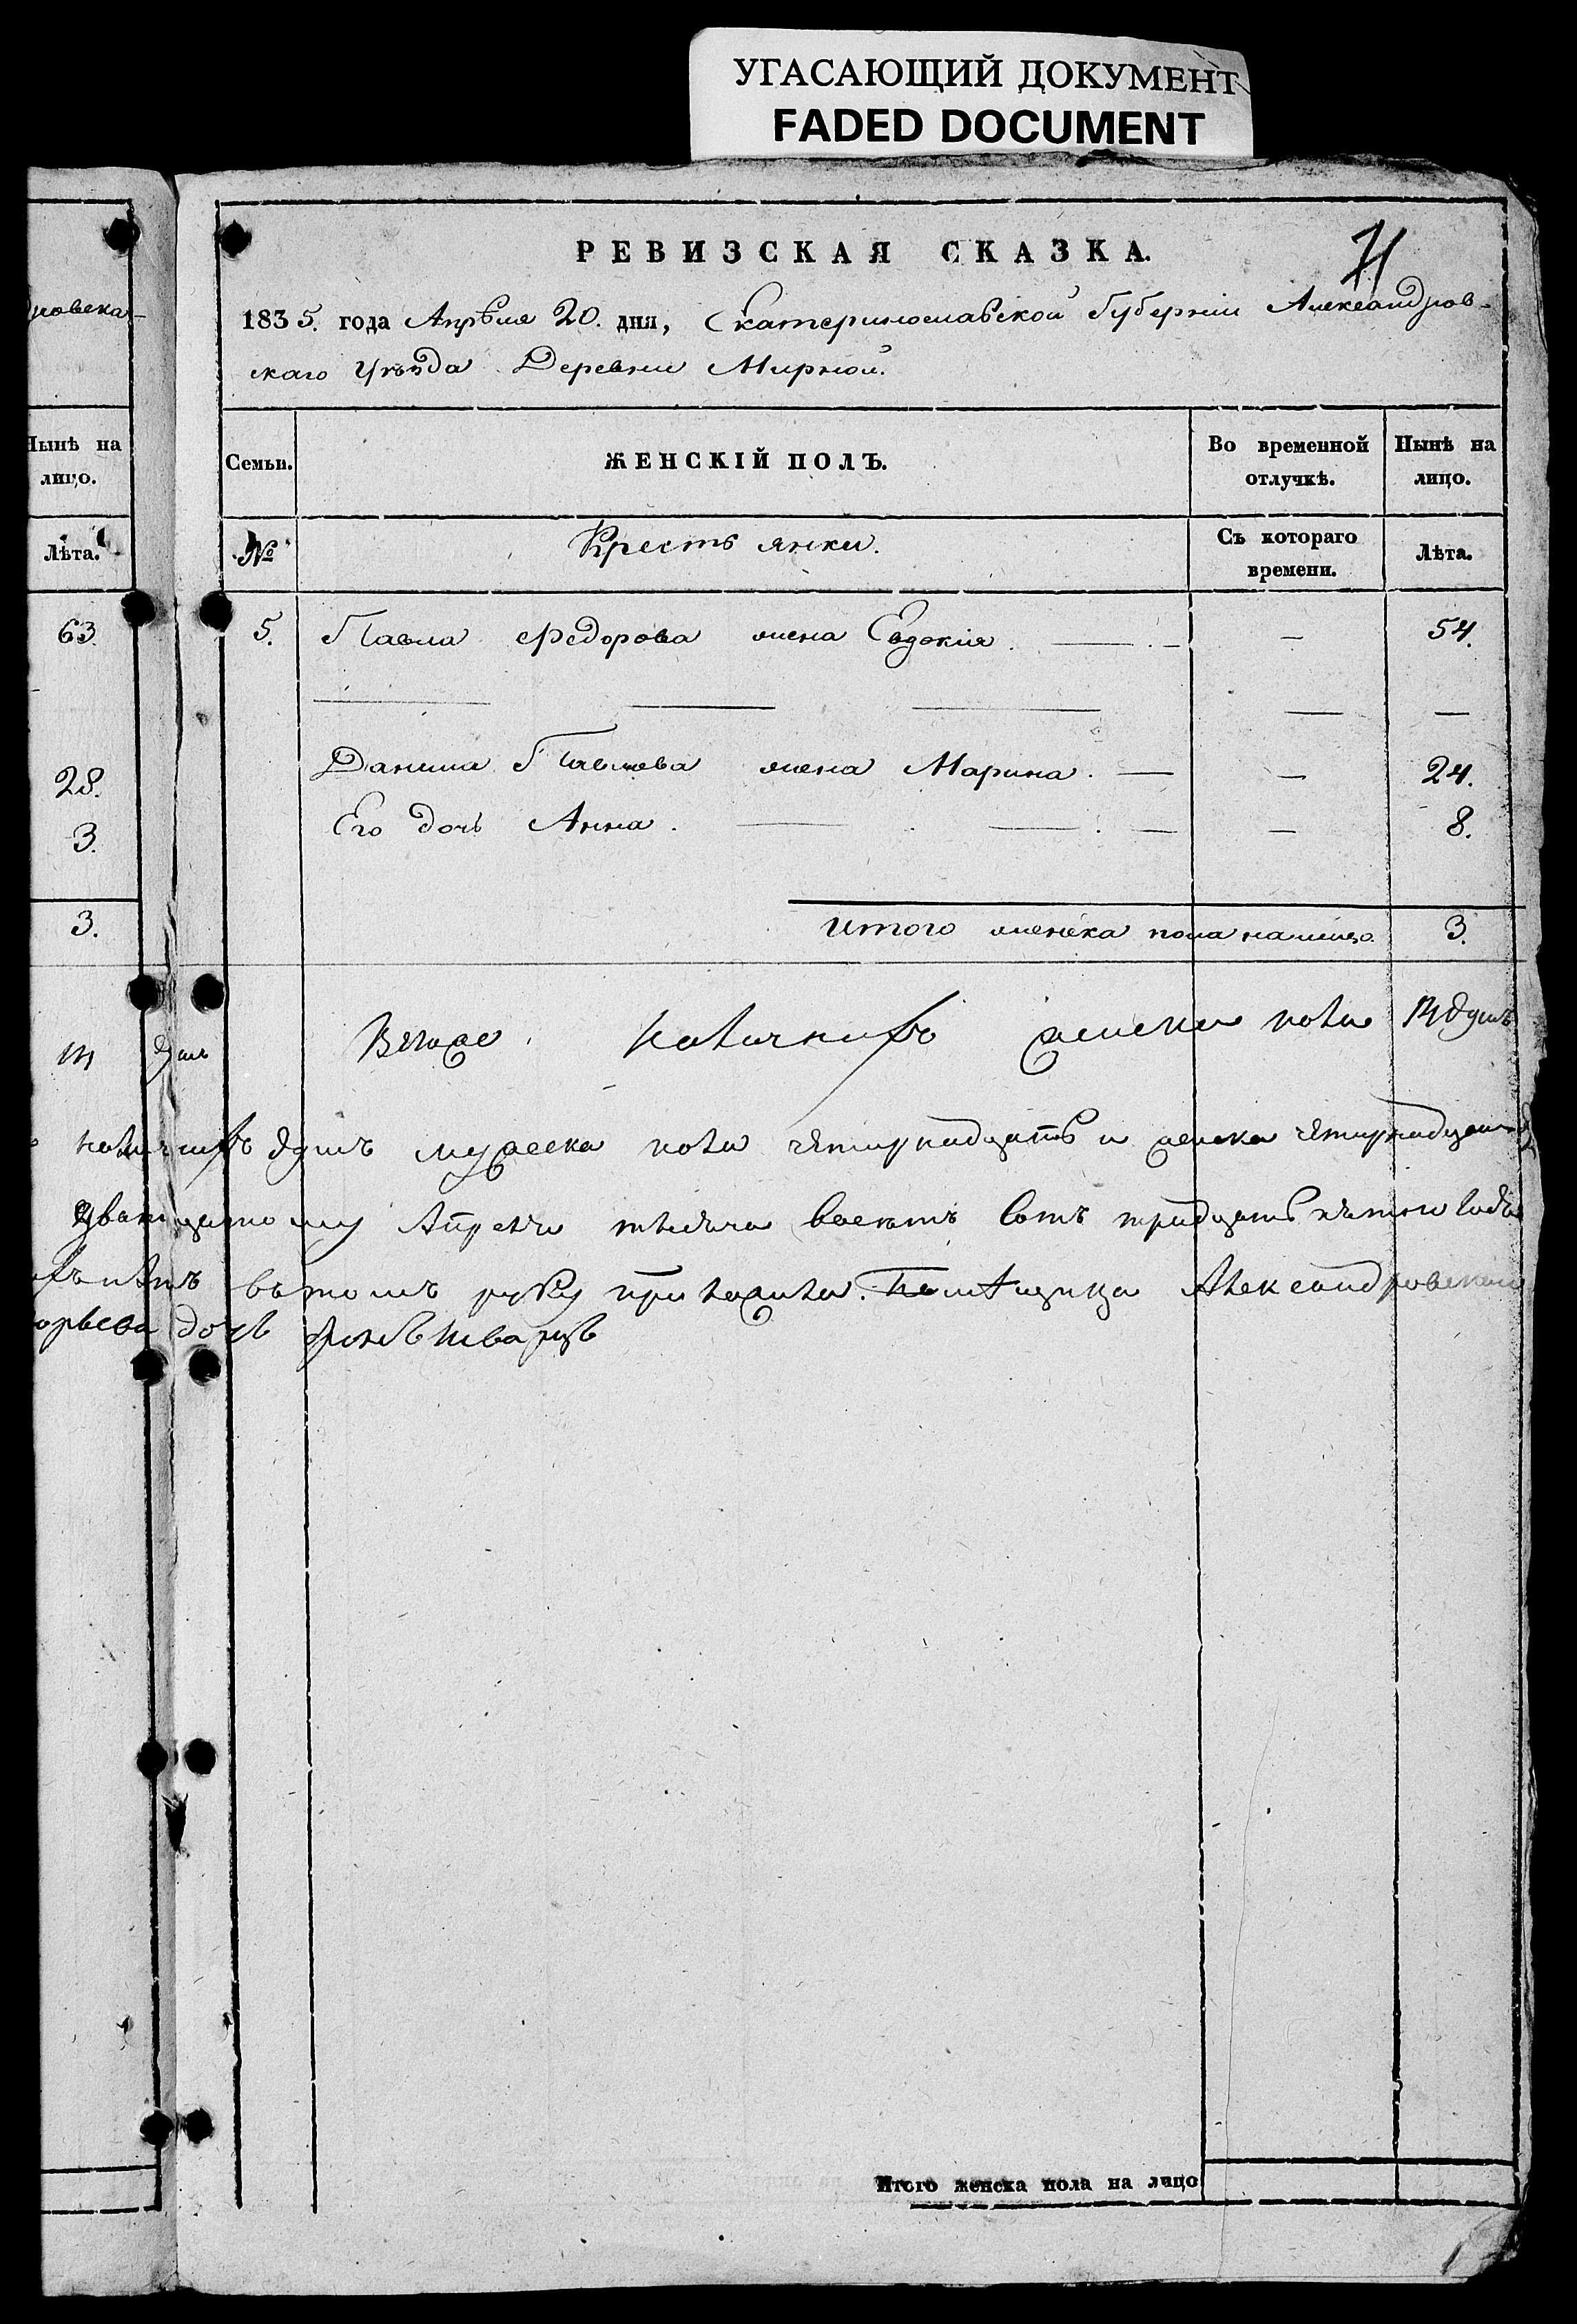 УГАСАЮЩИЙ ДОКУМЕНТ
FADED DOCUMENT
РЕВИЗСКАЯ СКАЗКА.
71
1835. года Апрѣля 20. дня, Екатеринославской Губерніи Александров-
скаго Уѣзда Деревни Мирной.
Нынѣ на
лицо.
Лѣта.
63.
28.
3.
3.
Семьи.
ЖЕНСКІЙ ПОЛЪ.
Во временной
отлучкѣ.
Нынѣ на
лицо.
№
Крестьянки.
Съ котораго
времени.
Лѣта.
5. Павла Федорова жена Евдокія. — — 54.
— — — — —
Данила Павлова жена Марина. — — 24.
Его дочь Анна. — — — — 8.
Итого женска пола налицо. 3.
14 душъ
Всего наличныхъ женска пола 14 душъ
наличныхъ душъ мужеска пола четырнадцать и женска четырнадцать
двадцатому Апреля тысяча восемъ сотъ тридцать пятого года
въ томъ руку приложила. Помѣщица Александровского
дочь
Итого женска пола на лицо